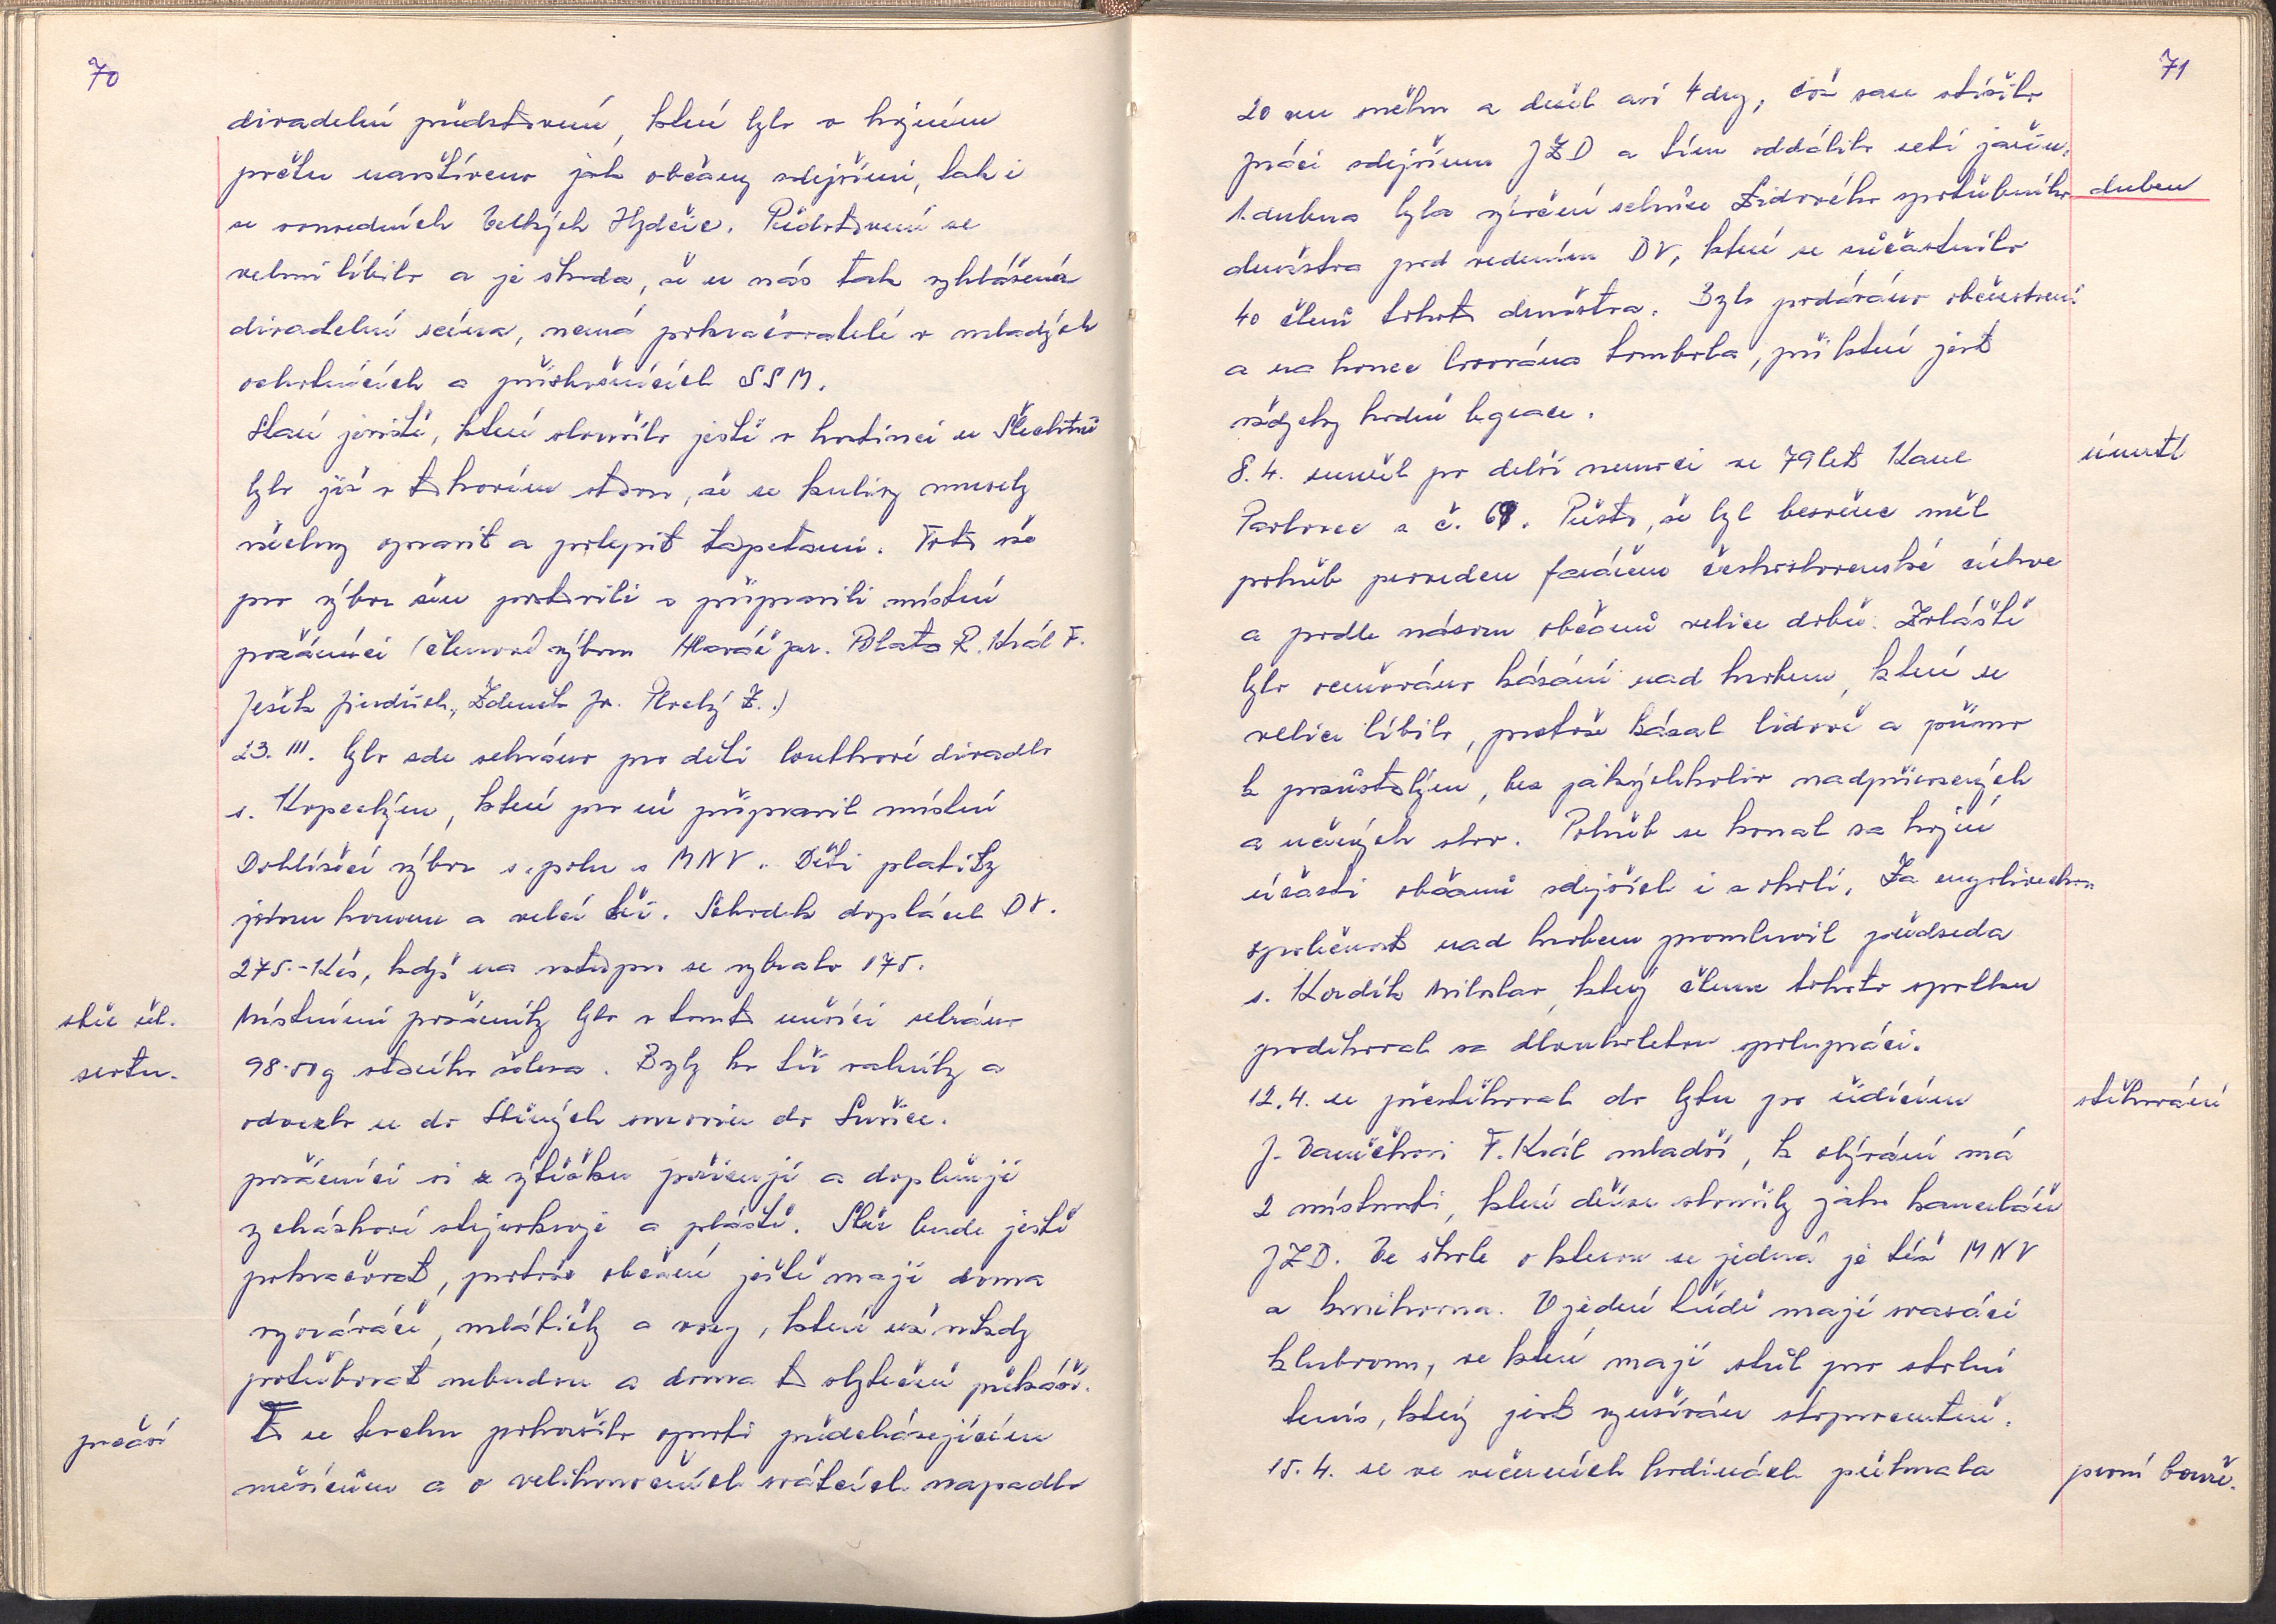 70
divadelní představení, které bylo v hojném
počtu navštíveno jak občany zdejšími, tak i
ze sousedních Velkých Hydčic. Představení se
velmi líbilo a je škoda, že u nás tak vyhlášená
divadelní scéna, nemá pokračovatelé v mladých
ochotnících a příslušnících SSM.
Staré jeviště, které sloužilo ještě v hostinci u Šlechtů
bylo již v takovém stavu, že se kulisy musely
všechny opravit a polepit tapetami. Toto vše
pro výbor žen postavili a připravili místní
požárníci (členové výboru Hlaváč jar. Polata R. Král F.
Ješík Jindřich, Zdeněk Jr. Plochý Z.)
23. III. bylo zde sehráno pro děti loutkové divadlo
s. Kopeckým, které pro ně připravil místní
Dohlížecí výbor spolu s MNV. Děti platily
jednou korunu a velcí tři. Schodek doplácel DV.
275.-Kčs, když na vstupu se vybralo 175.
sběr žel.
šrotu.
Místními požárníky bylo v tomto měsíci sebráno
98.00q starého železa. Byly ho tři valníky a
odvezlo se do Sběrných surovin do Sušice.
požárníci si z výtěžku pořizují a doplňují
vycházkové stejnokroje a pláště. Sběr bude ještě
pokračovat, protože občané ještě mají doma
vyoráváče, mlátičky a vozy, které už nikdy
potřebovat nebudou a doma to zbytečně překáží.
počasí
To se trochu pohoršilo oproti předcházejícímu
měsícům a o velikonočních svátcích napadlo
71
20 cm sněhu a držel asi 4 dny, což zase ztížilo
práci zdejšímu JZD a tím oddálilo setí jařin.
duben
1. dubna byla výroční schůze Lidového spotřebního
družstva pod vedením DV, které se zúčastnilo
40 členů tohoto družstva. Bylo podáváno občerstvení
a na konec losována tombola, při které jest
vždycky hodně legrace.
úmrtí
8.4. zemřel po delší nemoci ve 79 let Karel
Pavlovec z č. 69. Přesto, že byl bezvěrec měl
pohřeb proveden farářem československé církve
a podle názoru občanů velice dobře. Zvláště
bylo oceňováno kázání nad hrobem, které se
velice líbilo, protože kázal lidově a přímo
k pozůstalým, bez jakýchkoliv nadpřirozených
a učených slov. Pohřeb se konal za hojné
účasti občanů zdejších i z okolí. Za mysliveckou
společnost nad hrobem promluvil předseda
s. Kordík Miloslav, který členu tohoto spolku
poděkoval za dlouholetou spolupráci.
stěhování
12.4. se přestěhoval do bytu po řídícím
J. Vaněčkovi F. Král mladší, k obývání má
2 místnosti, které dříve sloužily jako kancelář
JZD. Ve škole o kterou se jedná je též MNV
a knihovna. V jedné třídě mají svazáci
klubovnu, ve které mají stůl pro stolní
tenis, který jest využíván stoprocentně.
první bouře.
15.4. se ve večerních hodinách přehnala